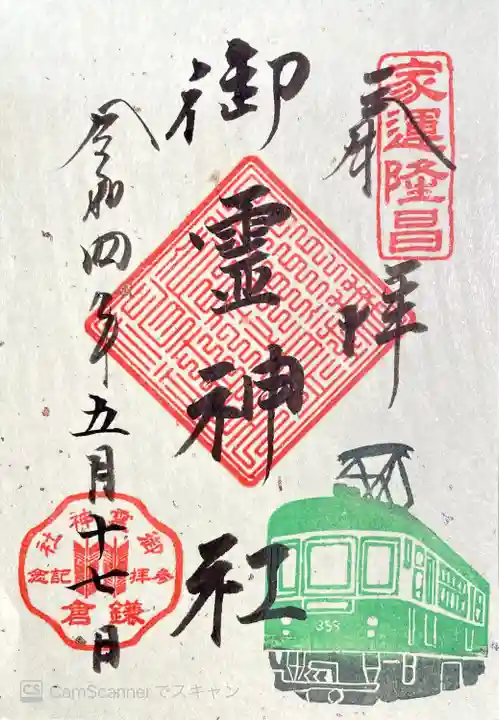 家運隆昌
奉拝
御靈神社
令和四年五月十七日
御靈神社
参拝記念
鎌倉
355
CS CamScanner でスキャン